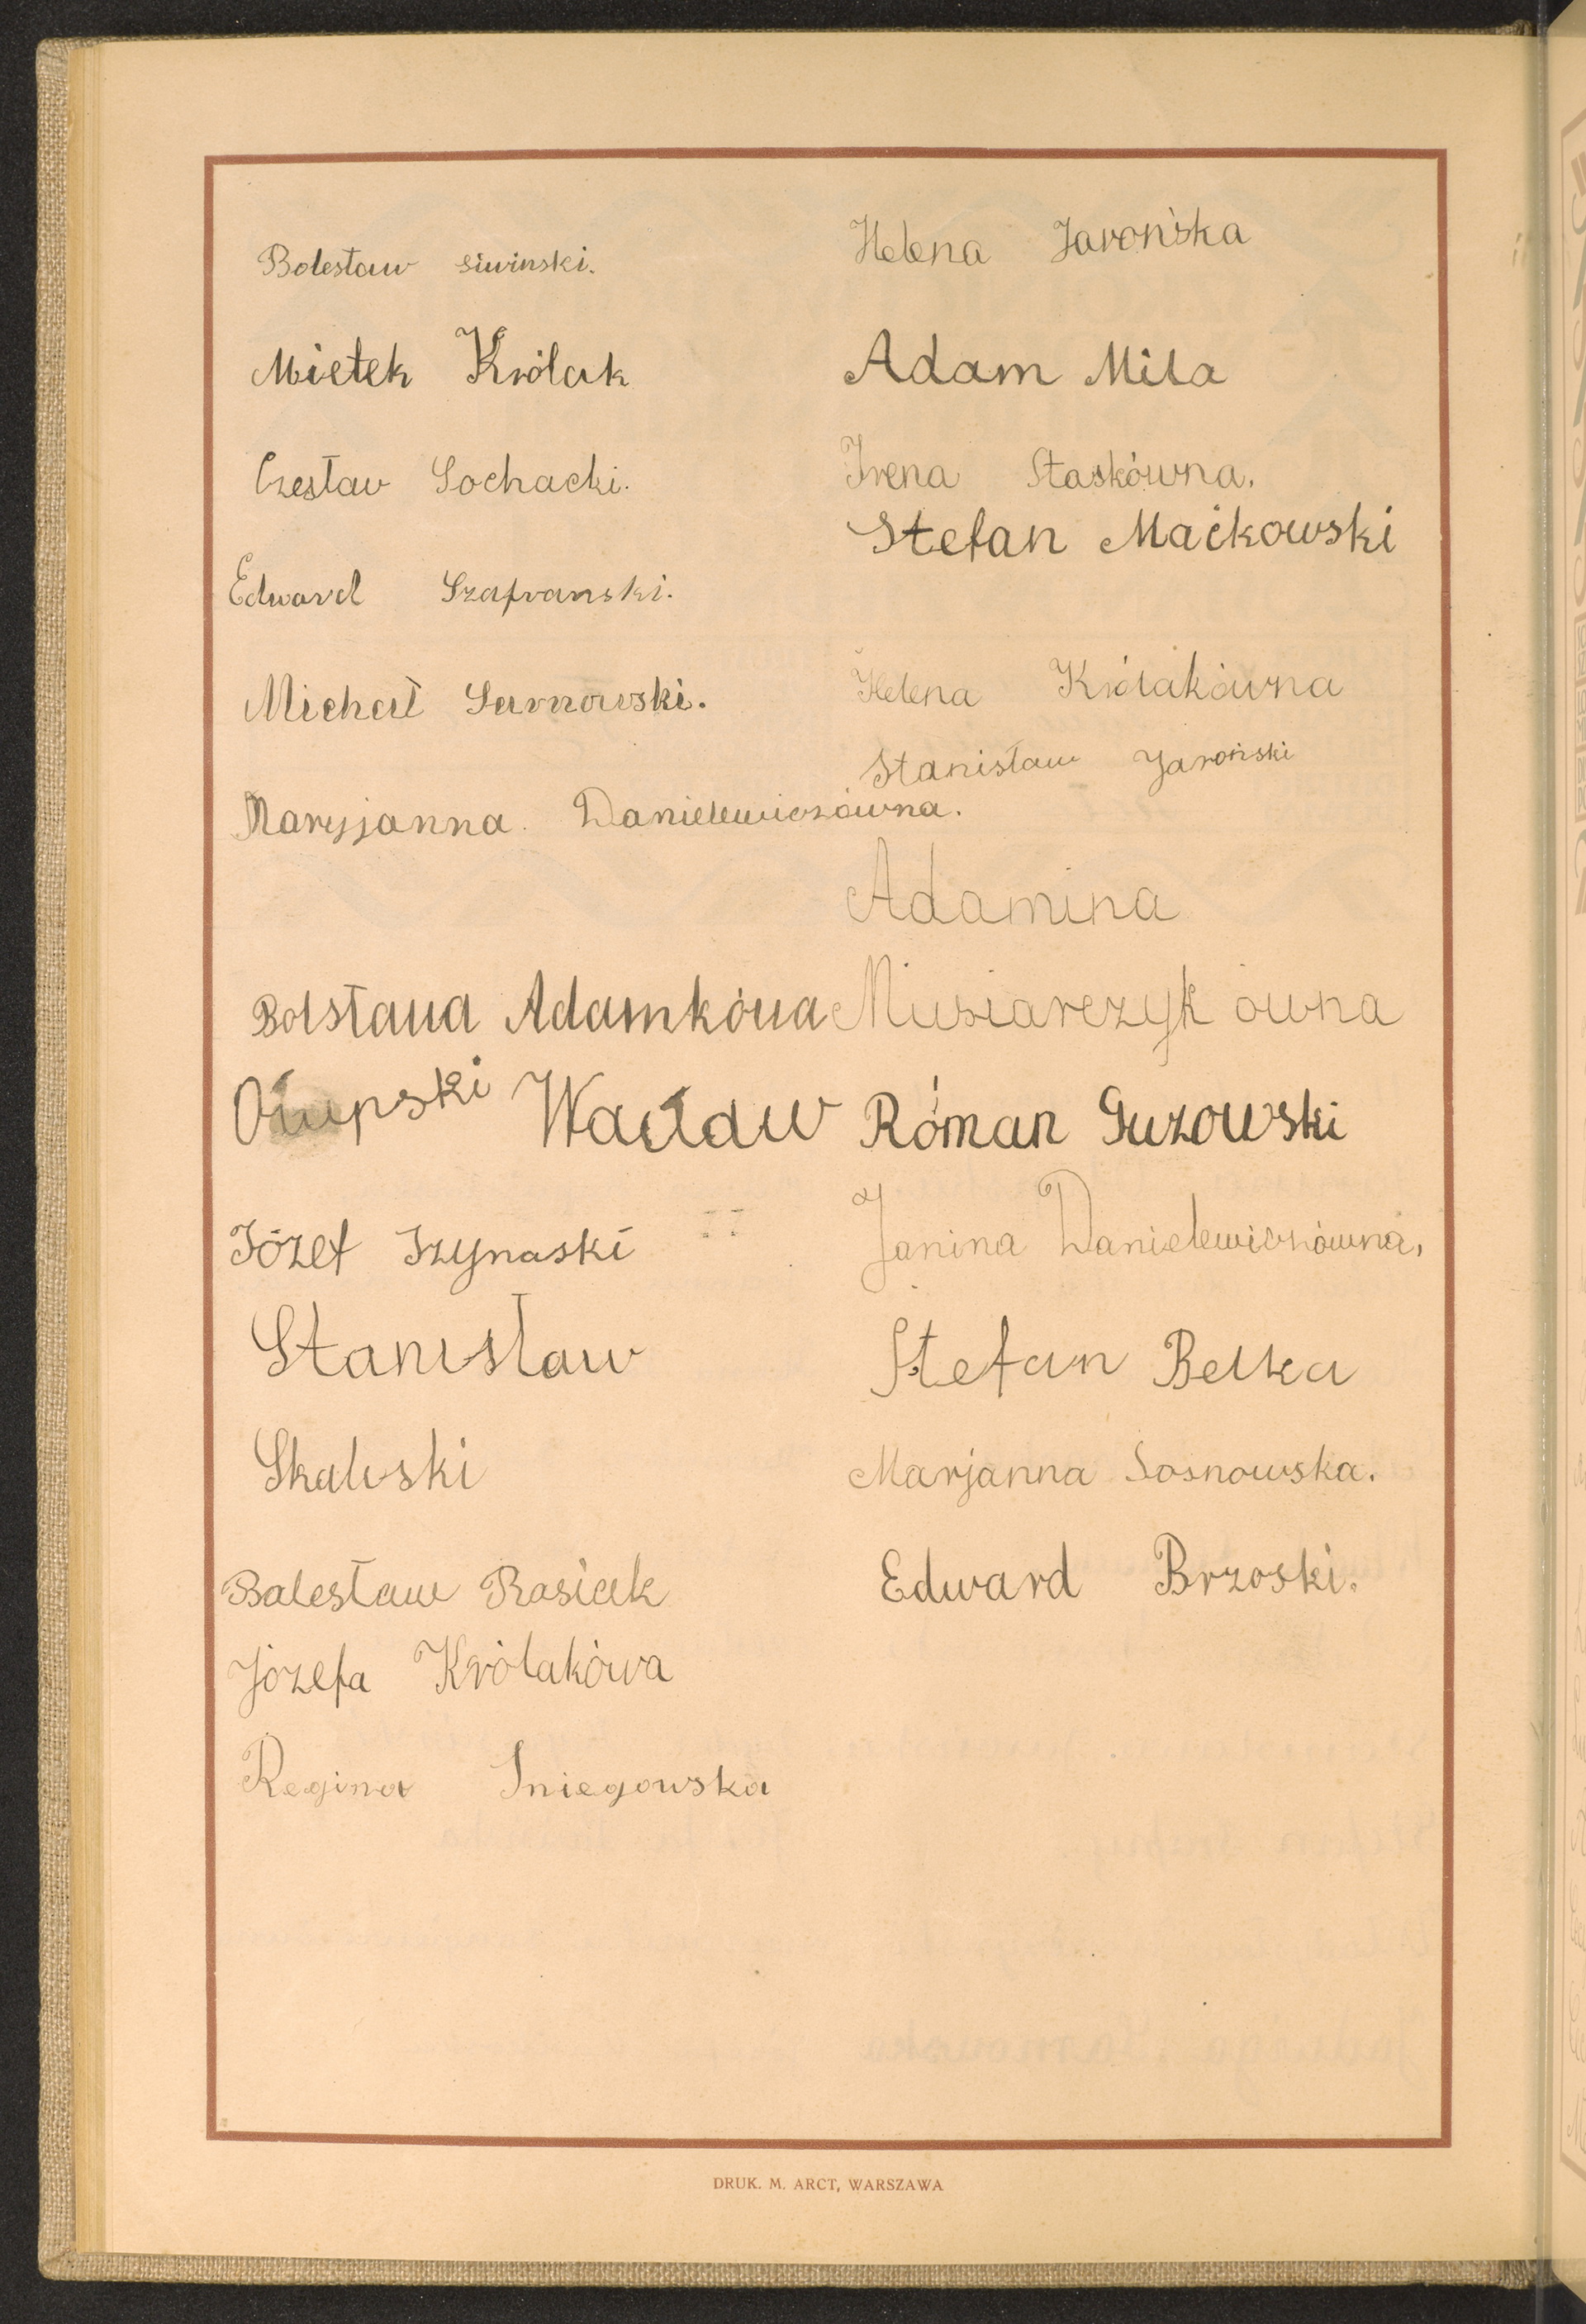 Bolesław siwinski.
Mietek Królak
Czesław Sochacki.
Edward Szafranski.
Michał Sarnowski.
Maryjanna Danielewiczówna.
Bolsława Adamkówa
Wacław
Józef Szynaski
Stanisław
Skalski
Balesław Rosiak
Józefa Królakówa
Regina Sniegowska
Helena Jarońska
Adam Mila
Irena Staskówna.
Stefan Maćkowski
Helena Królakówna
Stanisław Jaroński
Adamina
Musiarczyk ówna
Róman Guzowski
Janina Danielewiczówna.
Stefan Belka
Marjanna Sosnowska.
Edward Brzoski.
DRUK. M. ARCT, WARSZAWA